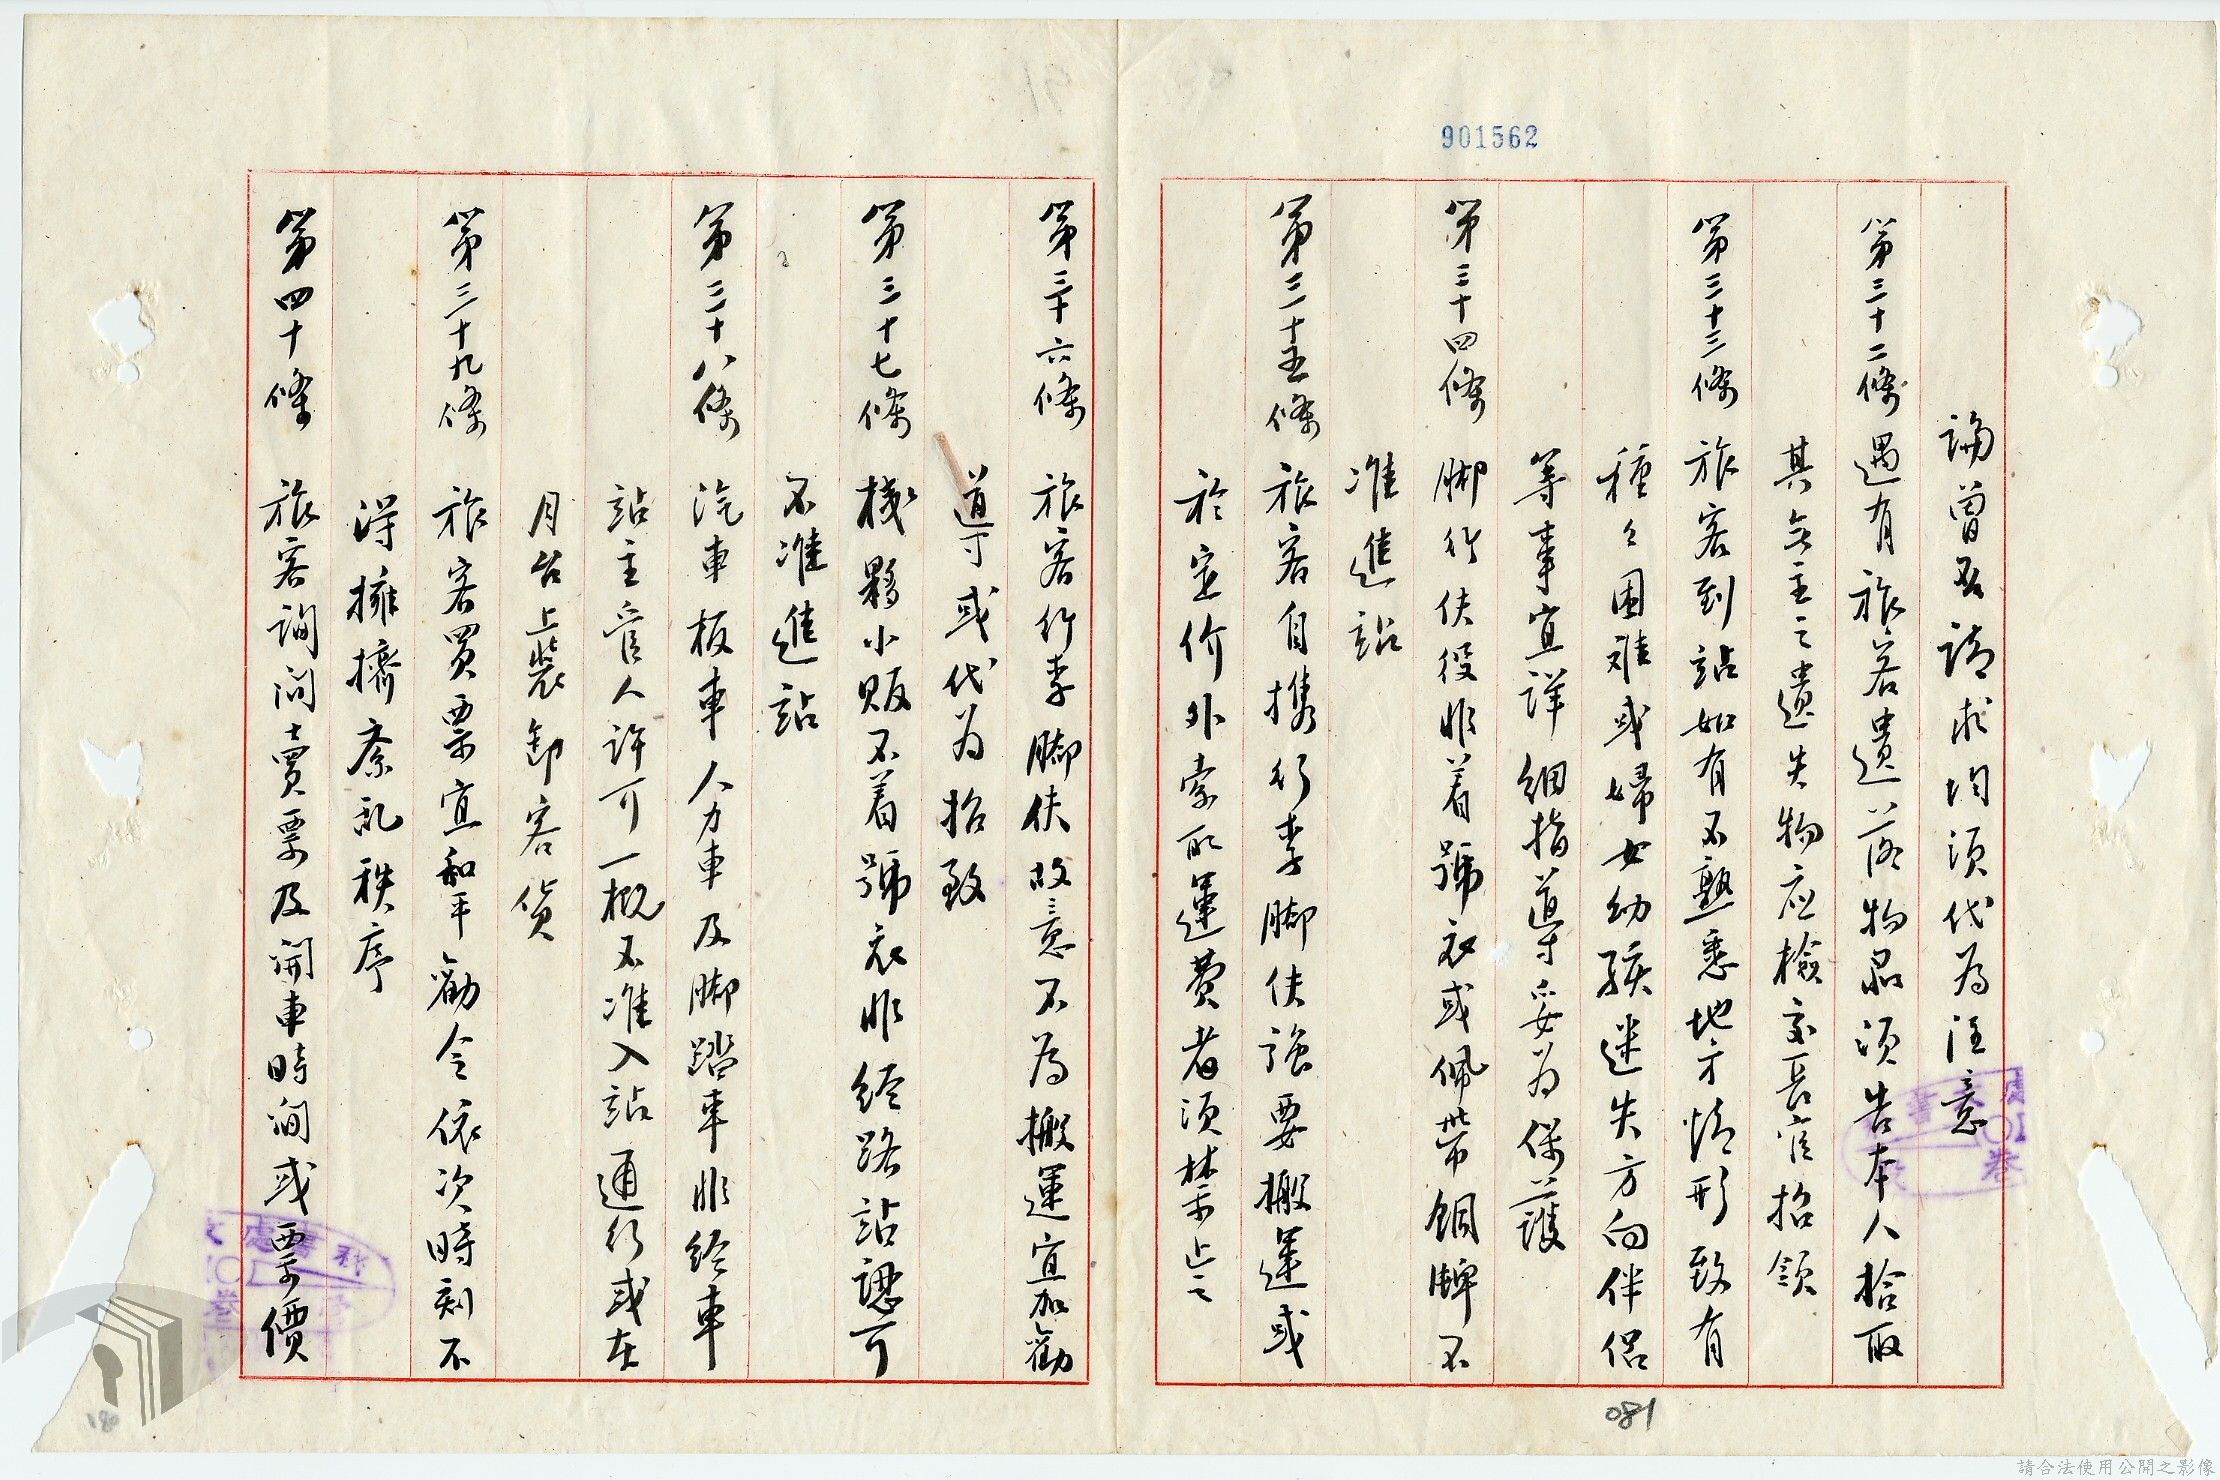 901562
論曾否請求均須代為注意
第三十二條 遇有旅客遺落物品須告本人拾取
其無主之遺失物应檢交長官招領
第三十三條 旅客到站如有不熟悉地方情形致有
種々困难或婦女幼孩迷失方向伴侶
等事宜詳細指導妥為保護
第三十四條 脚行伕役非着號衣或佩帶銅牌不
准進站
第三十五條 旅客自携行李脚伕強要搬運或
於定价外索取運費者須禁止之
081
第三十六條 旅客行李脚伕故意不為搬運宜加勸
導或代為招致
第三十七條 棧夥小販不着號衣非經路站認可
不准進站
第三十八條 汽車板車人力車及脚踏車非經車
站主管人許可一概不准入站通行或在
月台上裝卸客貨
第三十九條 旅客買票宜和平勸令依次時刻不
得擁擠紊乱秩序
第四十條 旅客詢問賣票及開車時間或票價
請合法使用公開之影像